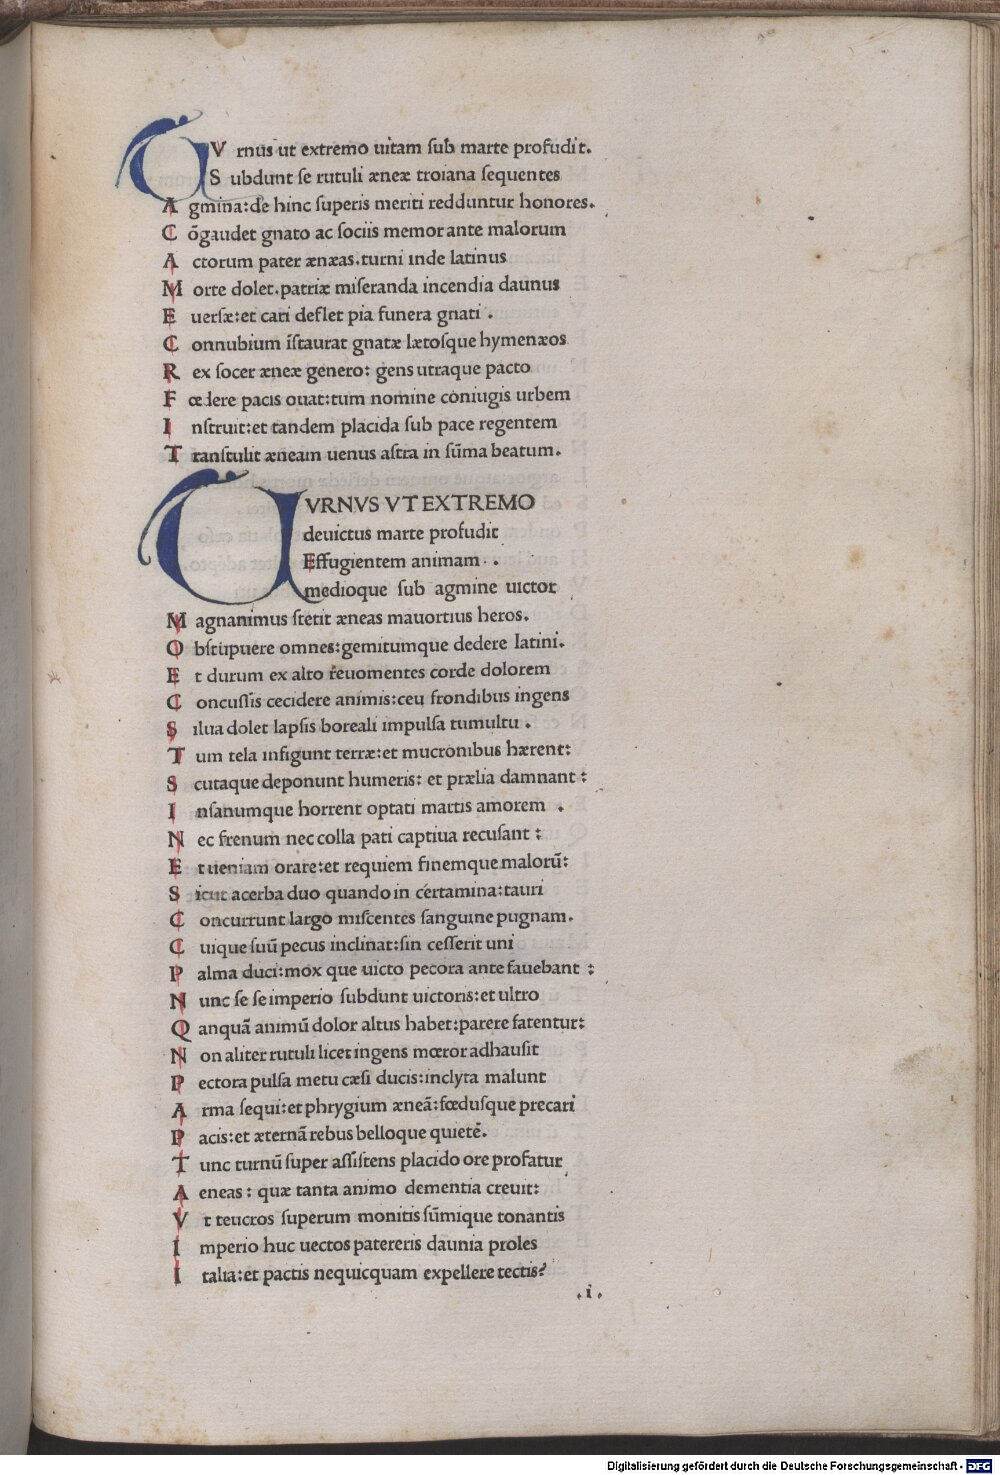 TV rnus ut extremo uitam ſub marte profudit.
S ubdunt ſe rutuli æneæ troiana ſequentes
A gmina:de hinc ſuperis meriti redduntur honores.
C õgaudet gnato ac ſociis memor ante malorum
A ctorum pater ænæas.turni inde latinus
M orte dolet.patriæ miſeranda incendia daunus
E uerſæ:et cari deflet pia funera gnati .
C onnubium īſtaurat gnatæ lætoſque hymenæos
R ex ſocer æneæ genero: gens utraque pacto
F œdere pacis ouat:tum nomine coniugis urbem
I nſtruit:et tandem placida ſub pace regentem
T ranſtulit æneam uenus aſtra in ſūma beatum.
TVRNVS VT EXTREMO
deuictus marte profudit
Effugientem animam .
medioque ſub agmine uictor
M agnanimus ſtetit æneas mauortius heros.
O bſtupuere omnes:gemitumque dedere latini.
E t durum ex alto reuomentes corde dolorem
C oncuſſis cecidere animis:ceu frondibus ingens
S ilua dolet lapſis boreali impulſa tumultu .
T um tela infigunt terræ:et mucronibus hærent:
S cutaque deponunt humeris: et prælia damnant :
I nſanumque horrent optati martis amorem .
N ec frenum nec colla pati captiua recuſant :
E t ueniam orare:et requiem finemque malorū:
S icut acerba duo quando in certamina:tauri
C oncurrunt largo miſcentes ſanguine pugnam.
C uique ſuū pecus inclinat:ſin ceſſerit uni
P alma duci:mox que uicto pecora ante fauebant :
N unc ſe ſe imperio ſubdunt uictoris:et ultro
Q anquā animū dolor altus habet:parere fatentur:
N on aliter rutuli licet ingens mœror adhauſit
P ectora pulſa metu cæſi ducis:inclyta malunt
A rma ſequi:et phrygium æneā:fœduſque precari
P acis:et æternā rebus belloque quietē.
T unc turnū ſuper aſſiſtens placido ore profatur
A eneas : quæ tanta animo dementia creuit:
V t teucros ſuperum monitis ſūmique tonantis
I mperio huc uectos patereris daunia proles
I talia:et pactis nequicquam expellere tectis?
.i.
Digitalisierung gefördert durch die Deutsche Forschungsgemeinschaft - DFG